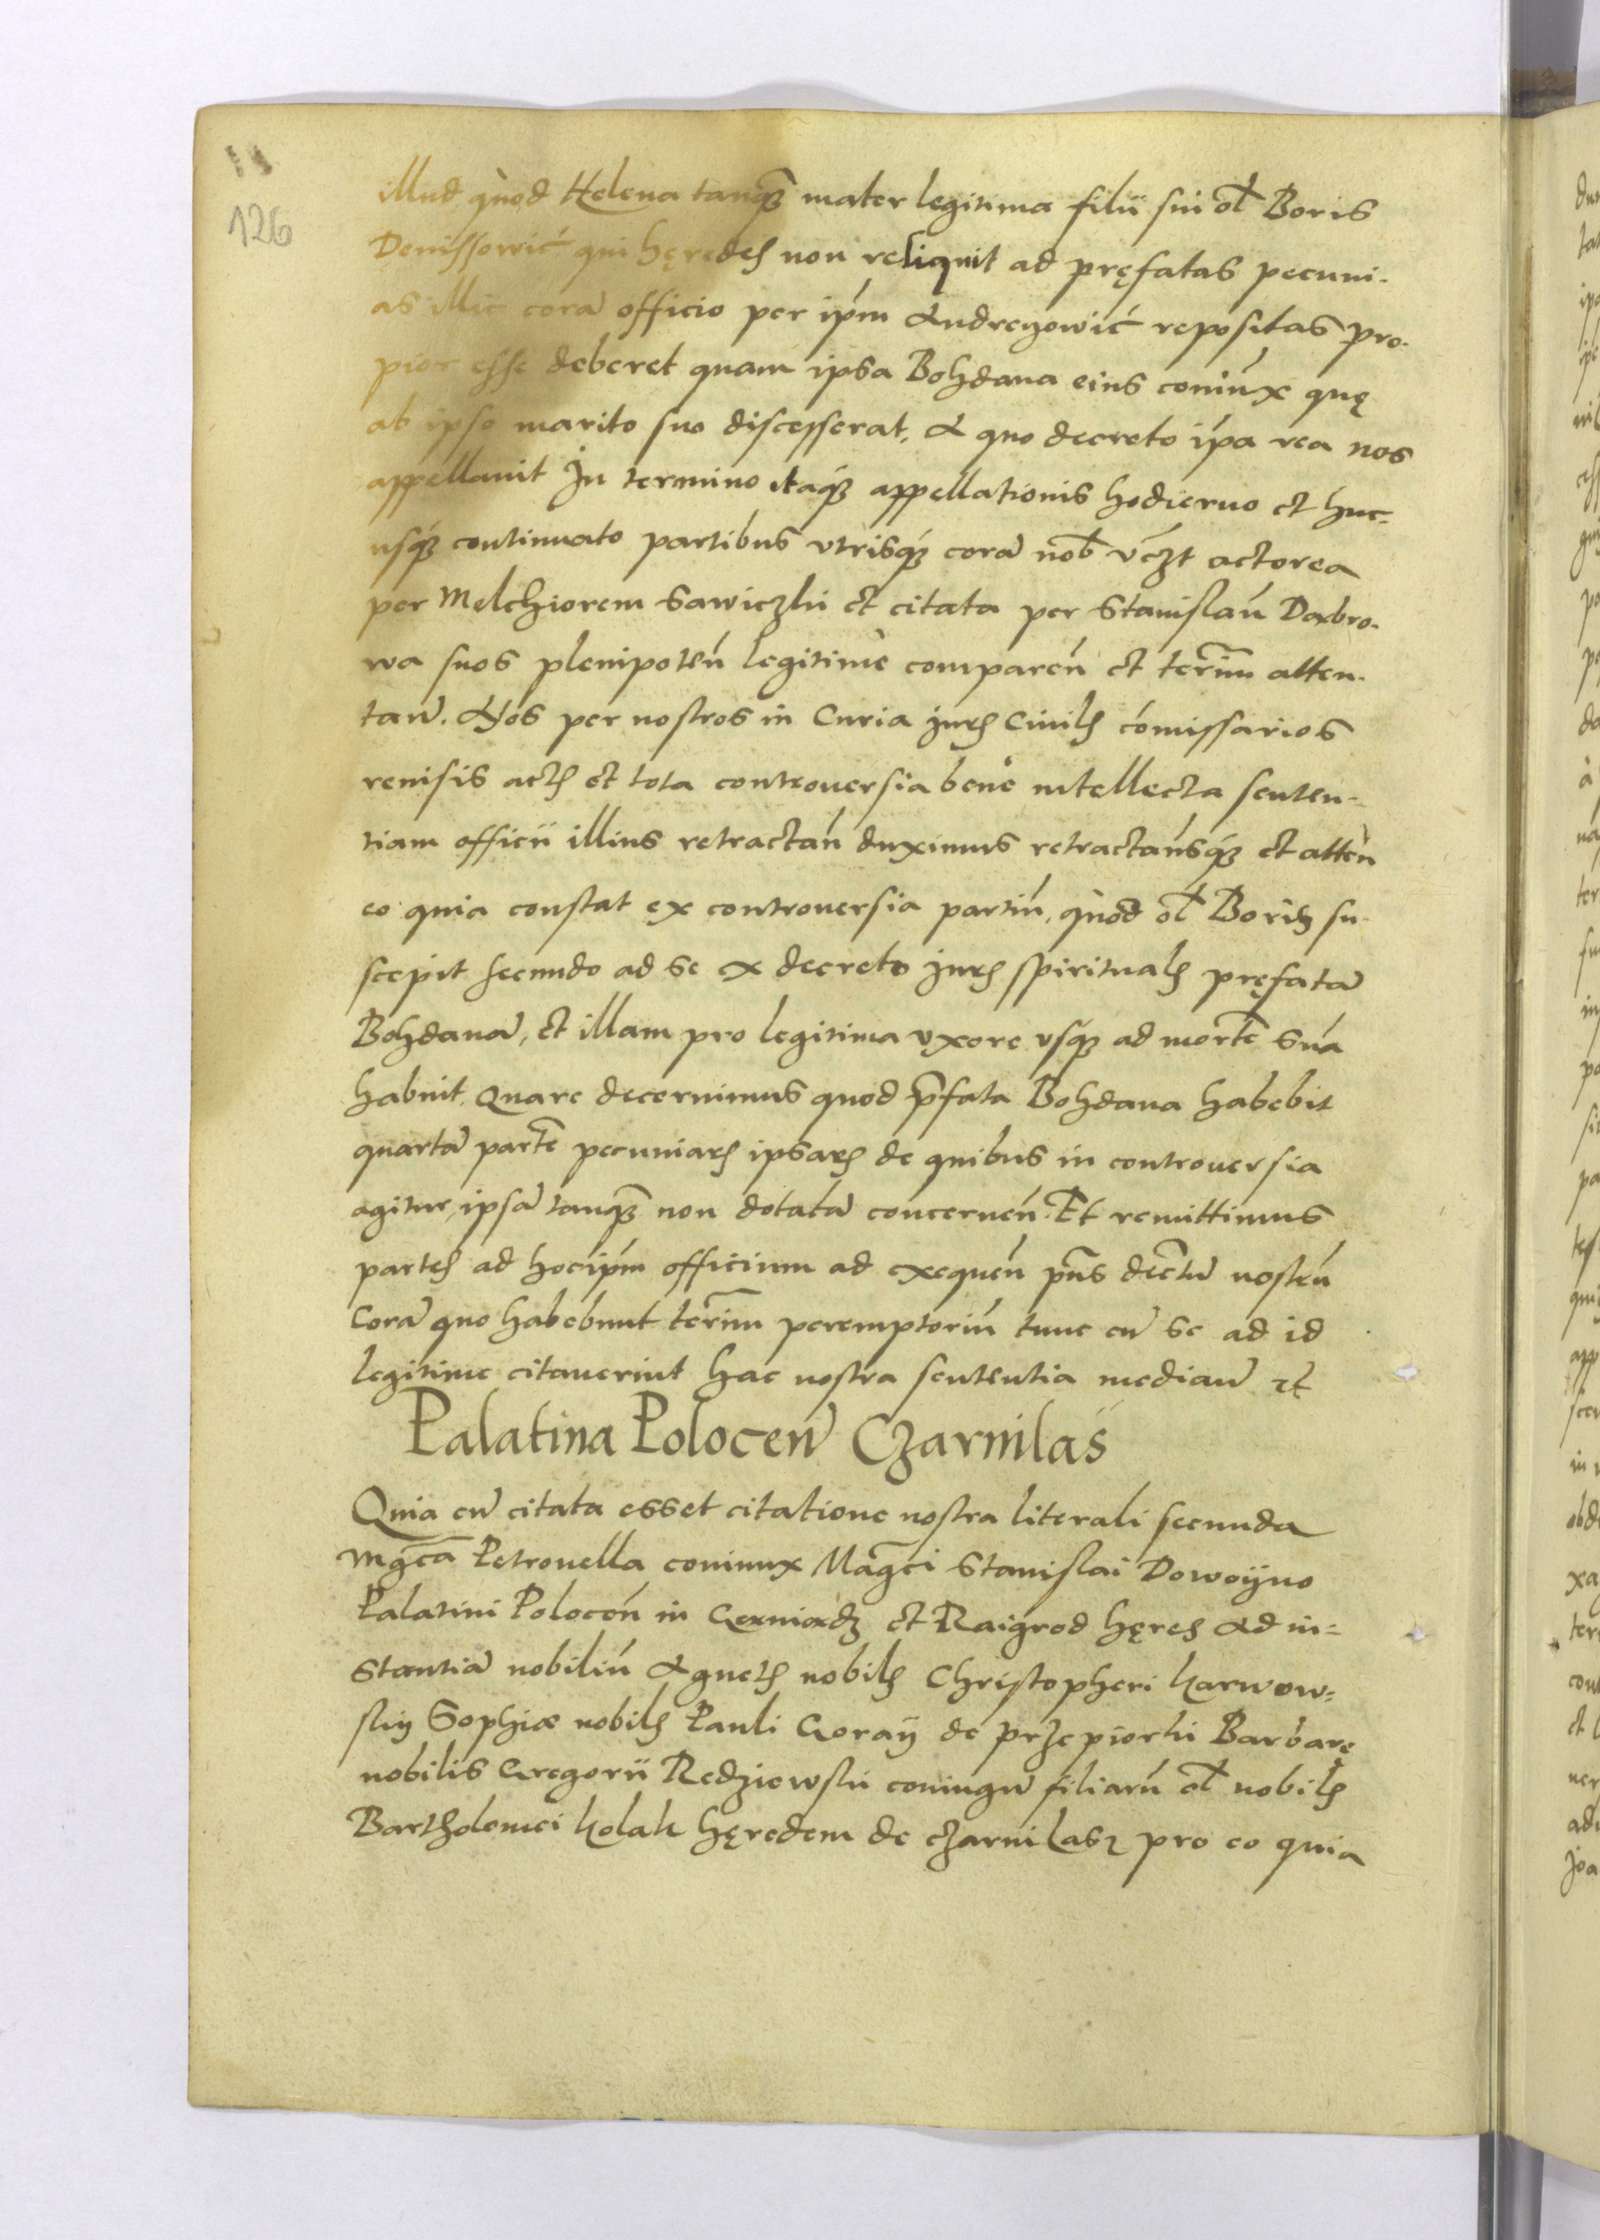 126
illud quòd Helena tanq̃ mater legitima filii sui ol̃ Boris
Denissowić qui hęredes non reliquit ad pręfatas pecuni-
as illic corã officio per ipm̃ Andrezowić repositas pro-
pior esse deberet quam ipsa Bohdana eius coniũx quę
ab ipso marito suo discesserat, A quo decreto ip̃a rea nos
appellauit In termino itaq̃ appellationis hodierno et huc-
usq̃ continuato partibus vtrisq̃ corã nob̃ vczt actorea
per Melchiorem Sawiczki et citata per Stanislaũ Dabro-
wa suos plenipoteñ legitimè compareñ et term̃ atten-
tañ. Nos per nostros in Curia Juris Ciuilis com̃issarios
reuisis actis et tota controuersia bene intellecta senten-
tiam officii illius retractañ duximus retractamusq̃ et atteñ
eo quia constat ex controuersia partiũ, quòd ol̃ Boris su-
scepit secundo ad se ex decreto Juris spiritualis pręfatã
Bohdanã, et illam pro legitima vxore vsq̃ ad mortẽ suã
habuit. Quare decernimus quod p̃fata Bohdana habebit
quartã partẽ pecuniarũ ipsarũ de quibus in controuersia
agitur, ipsã tanq̃ non dotatã concerneñ. Et remittimus
partes ad hocip̃m officium ad exequeñ pñs dectũ nostrũ
Corã quo habebunt term̃ peremptoriũ tunc cũ se ad id
legitime citauerint hac nostra sententia mediañ et
Palatina Poloceñ Czarnilas
Quia cũ citata esset citatione nostra literali secunda
Mgca Petronella coniunx Magci Stanislai Dowoijno
Palatini Poloceñ in et Raigrod hęres Ad in-
stantiã nobiliũ Agnetis nobilis Christopheri Karwow-
skij Sophiæ nobilis Pauli Goraij de Przepiorki Barbarę
nobilis Gregorii Redziewski coniugũ filiarũ ol̃ nobilis
Bartholomei Kolak hęredem de Czarnilas pro eo quia